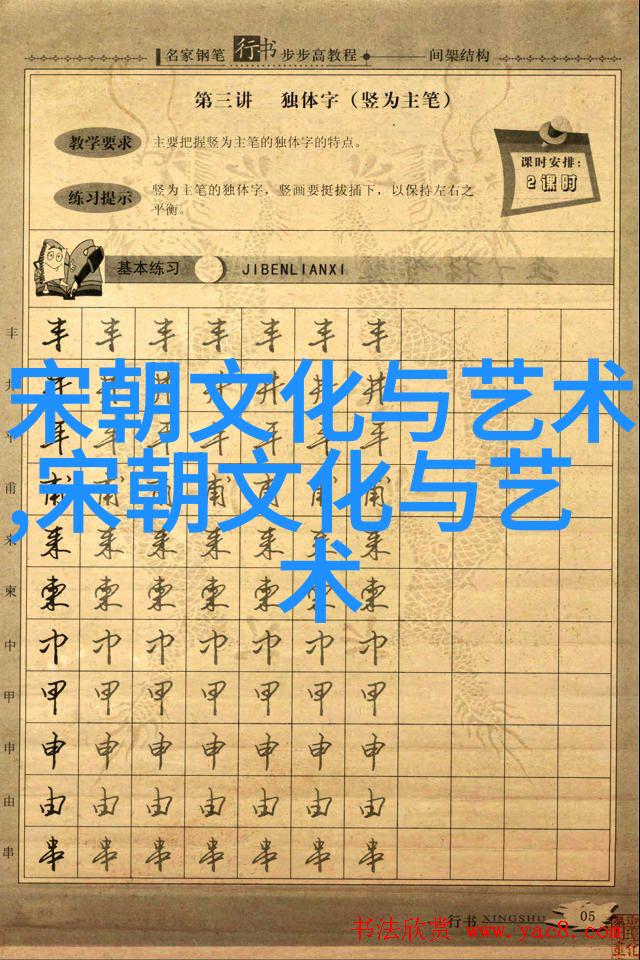 名家钢笔 行书 步步高教程 间架结构
第三讲 独体字（竖为主笔）
教学要求 主要把握竖为主笔的独体字的特点。
练习提示 竖为主笔的独体字，竖画要挺拔插下，以保持左右之
平衡。
课时安排：
2课时
基本练习 JIBENLIANXI
丰 丰 丰 丰 丰 丰 丰 丰
宋朝文化与艺术
,宋朝文化与艺
术
甫
来 来 来 来 来 来 来
柬 柬 柬 柬 柬 柬 柬
中 巾 巾 巾 巾 巾 巾 巾
甲 甲 甲 甲 甲 甲 甲 甲
申 申 申 申 申 申 申 申
由 由 由 由 由 由 由 由
串 串 串 串 串 串 串 串
行书 XINGSHU 05
书法欣赏 www.yac8.com